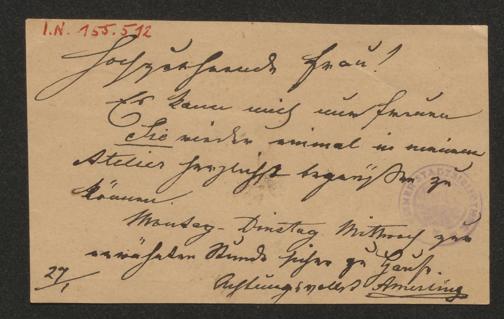 I.N. 155.512
Hochverehrende Frau!
Es kann mich nur freuen
Sie wieder einmal in meinem
Atelier herzlichst begrüßen zu
können.
Montag - Dinstag Mittwoch zur
erwähnten Stunde sicher zu Hause.
27/1
Achtungsvollst Amerling